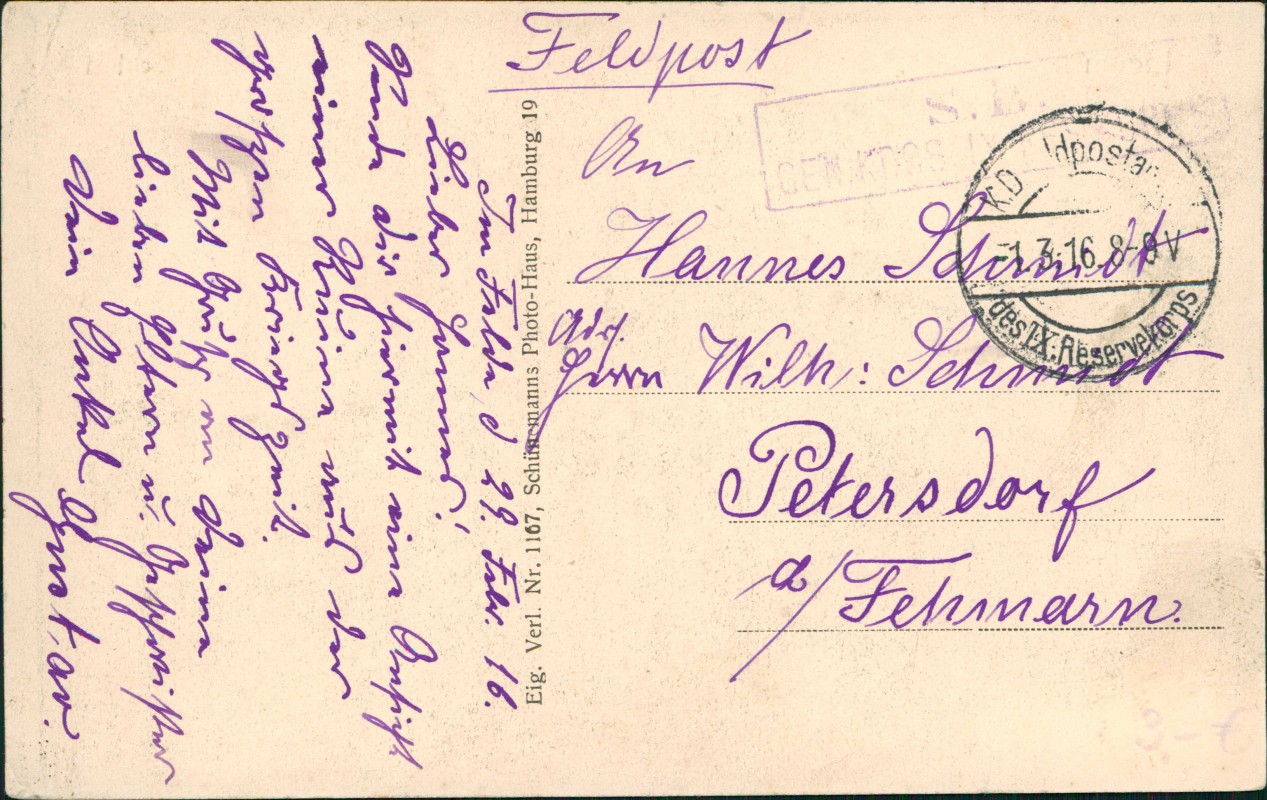 Feldpost
An
Hannes Schmidt
Adr.
Herrn Wilh: Schmidt
Petersdorf
a/Fehmarn.
K.D. ldposta
-1.3.16. 8-9 V
des IX. Reservekorps
S.B.
GEN. KDOS
Eig. Verl. Nr. 1167, Schünemanns Photo-Haus, Hamburg 19
Im Felde, d 29. Febr. 16.
Lieber Hannes!
Sende dir hiermit eine Ansicht
einer Ruine aus der
Kriegszeit.
Mit Gruß an deine
lieben Eltern u. Geschwister
Dein Onkel Gustav.
3.- €